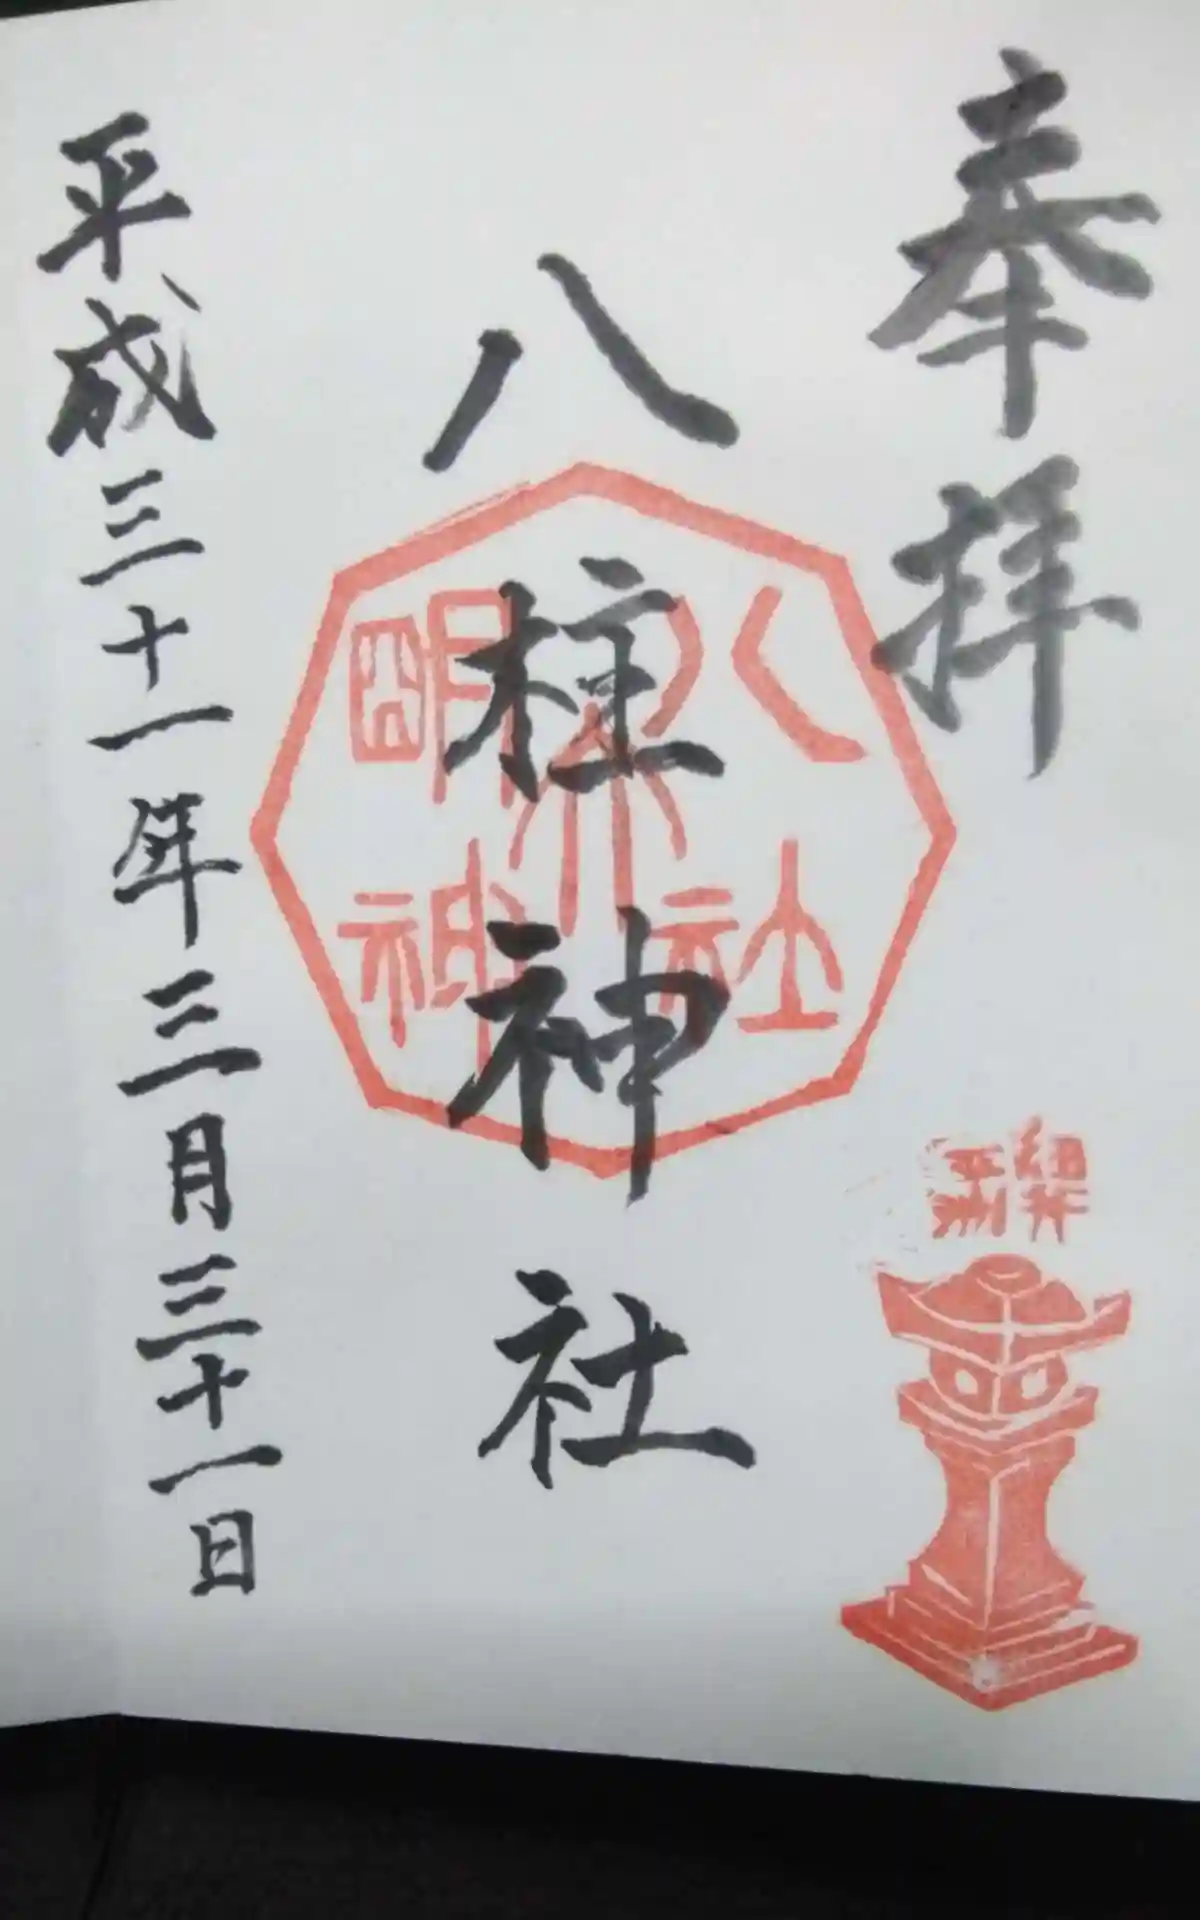 奉拝
八柱神社
八柱社
明神
平成三十一年三月三十一日